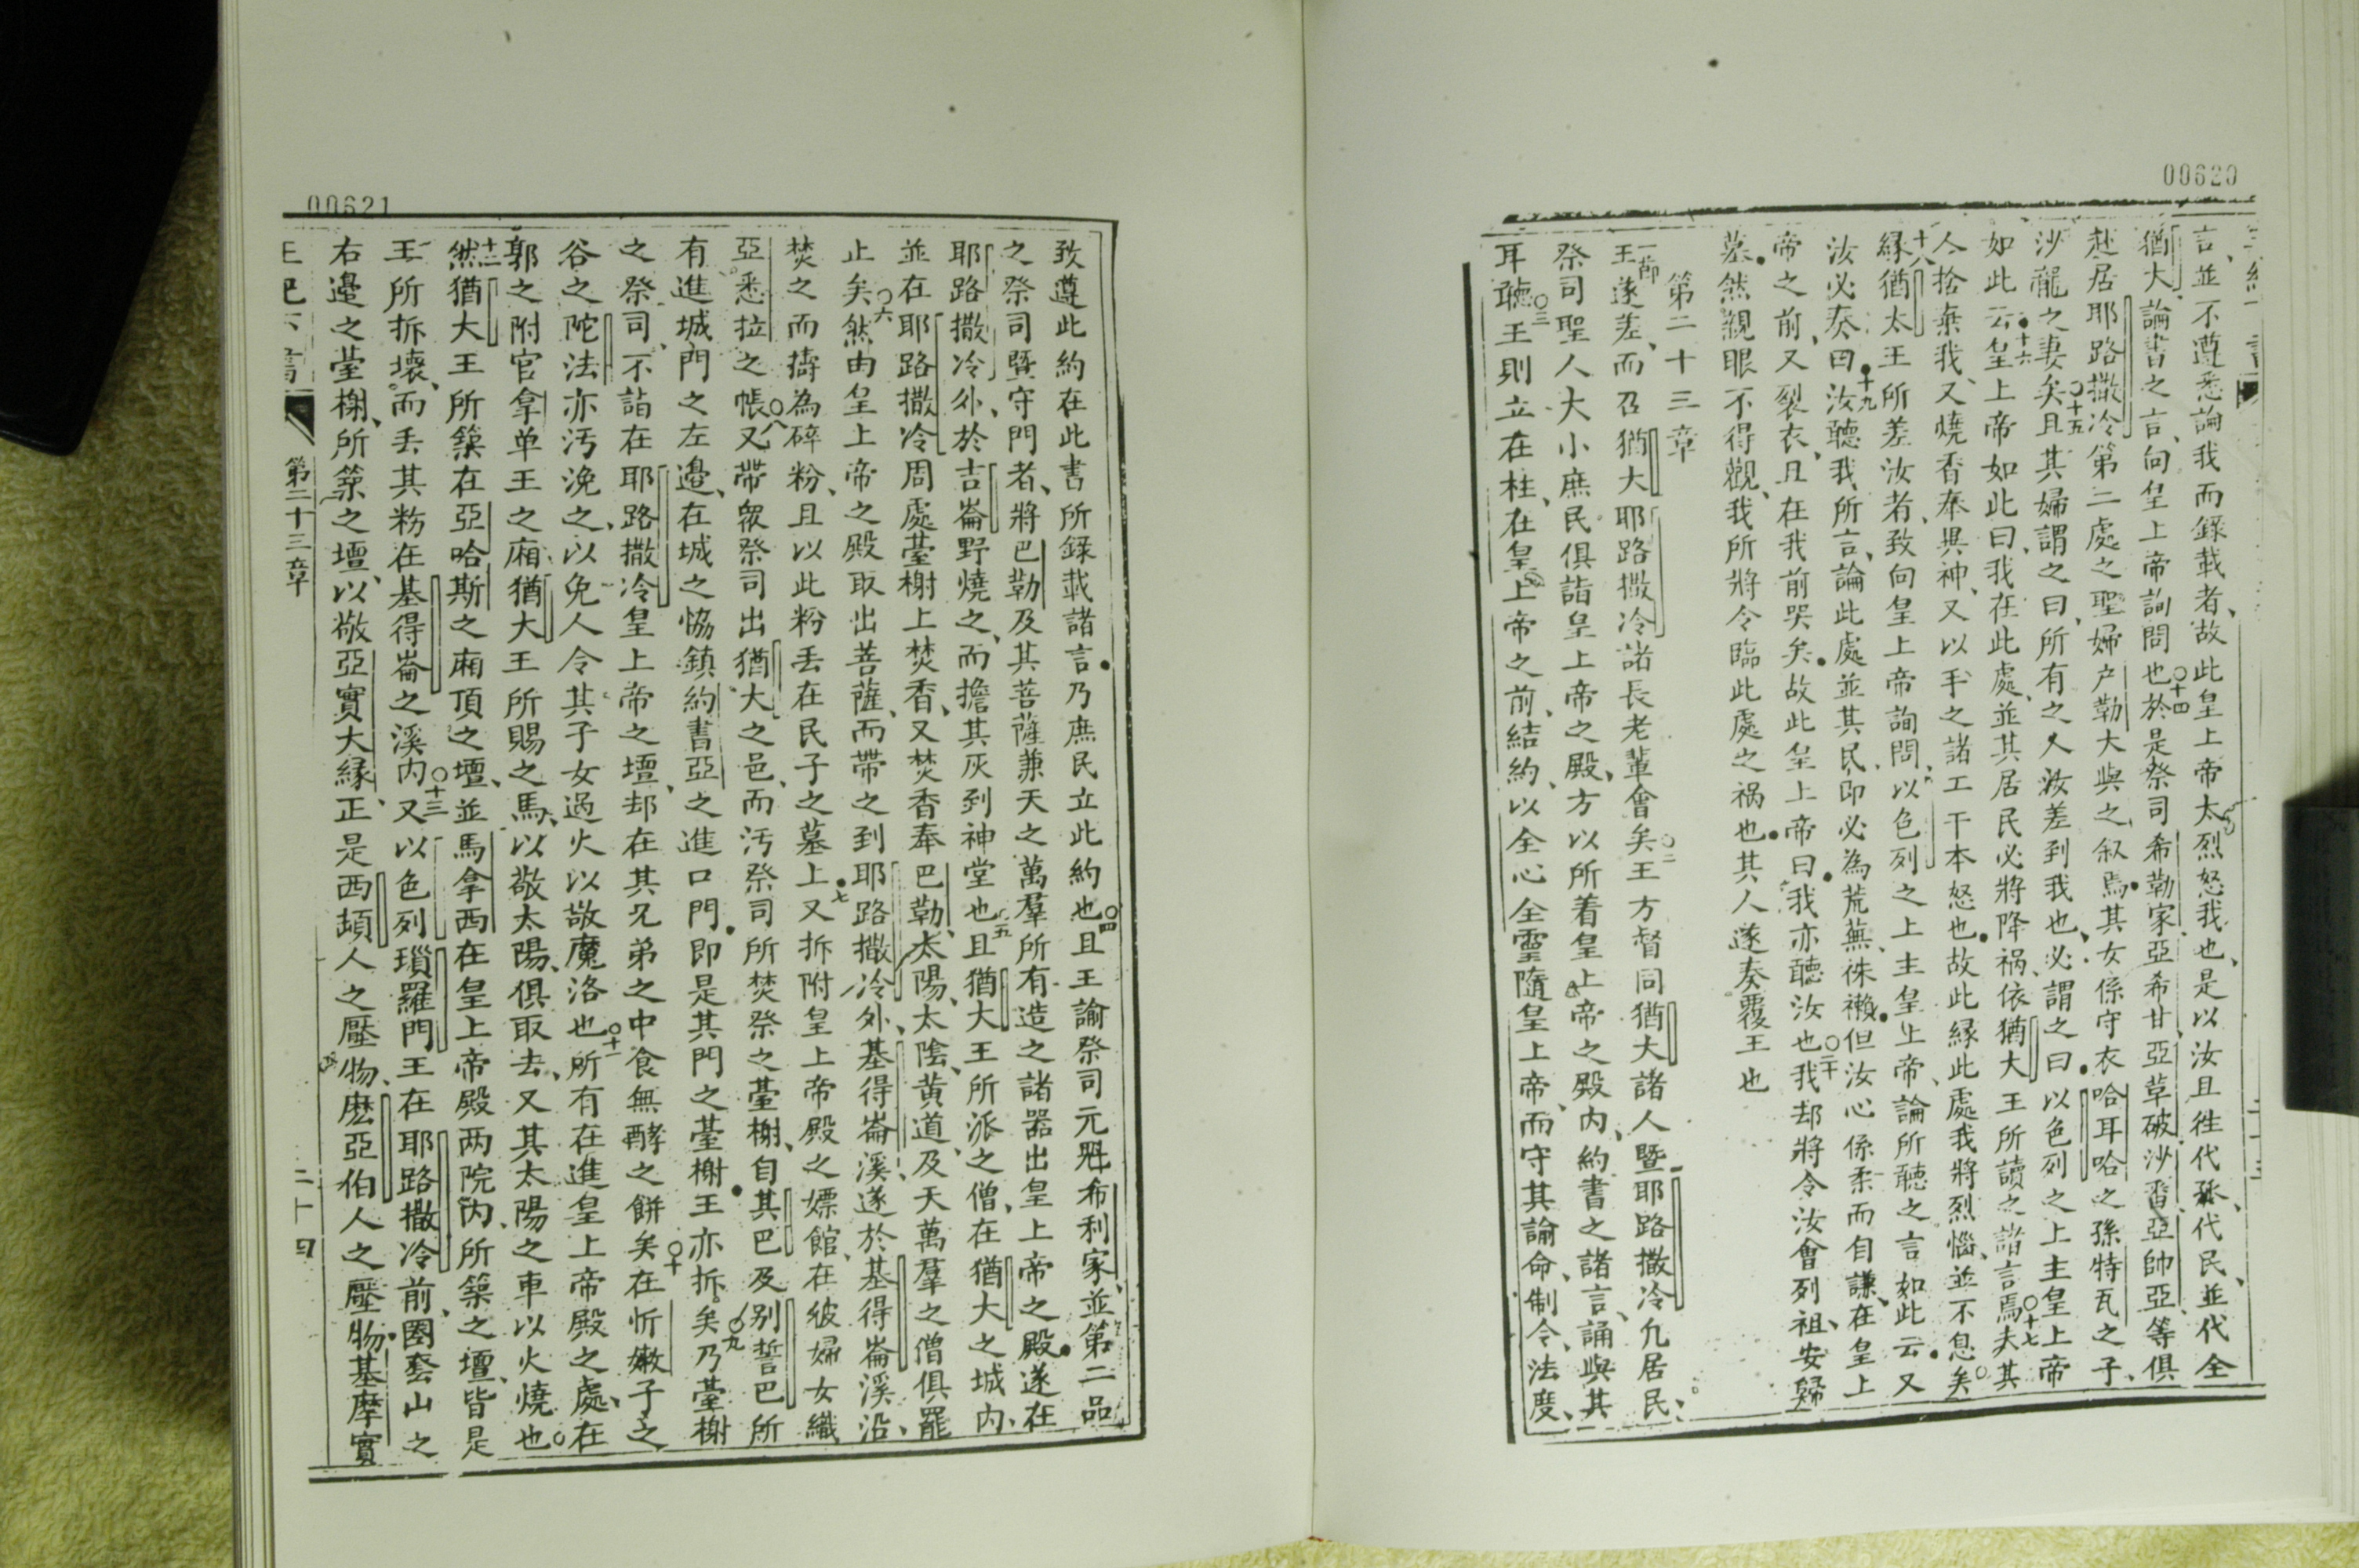 00620
言、並不遵悉論我而錄載者、故此皇上帝太烈怒我也、是以汝且徃代孤、代民、並代全
猶大、論書之言、向皇上帝詢問也○十四於是祭司希勒家、亞希甘、亞草破、沙番、亞帥亞、等俱
赴居耶路撒冷第二處之聖婦户勒大與之叙焉●其女係守衣哈耳哈之孫特瓦之子、
沙龍之妻矣○十五且其婦謂之曰、所有之人汝差到我也、必謂之曰●以色列之上主皇上帝
如此云●十六皇上帝如此曰、我在此處、並其居民必將降祸、依猶大王所讀之諸言焉○十七夫其
人捨棄我、又燒香奉異神、又以手之諸工干本怒也●故此緣此處我將烈惱、並不息矣○
十八緣猶大王所差汝者、致向皇上帝詢問、以色列之上主皇上帝、論所聽之言如此云●又
汝必奏曰●十九汝聽我所言、論此處並其民、即必為荒蕪、咮襰●但汝心係柔而自謙、在皇上
帝之前、又裂衣、且在我前哭矣●故此皇上帝曰●我亦聽汝也○二十我却將令汝會列祖、安歸
墓●然親眼不得觀、我所將令臨此處之祸也●其人遂奏覆王也
第二十三章
一節王遂差、而召猶大耶路撒冷諸長老輩會矣○二王方督同猶大諸人暨耶路撒冷凢居民、
祭司聖人大小庶民俱詣皇上帝之殿、方以所着皇上帝之殿內、約書之諸言、誦與其
耳聽○三王則立在柱、在皇上帝之前、結約、以全心全靈隨皇上帝、而守其諭命、制令、法度、
00621
致遵此約在此書所錄載諸言●乃庶民立此約也○四且王諭祭司元魁希利家、並第二品
之祭司暨守門者、將巴勒及其菩薩兼天之萬羣所有造之諸器出皇上帝之殿●遂在
耶路撒冷外、於吉崙野燒之、而擔其灰到神堂也○五且猶大王所派之僧、在猶大之城内、
並在耶路撒冷周處臺榭上焚香、又焚香奉巴勒、太陽、太陰、黄道、及天萬羣之僧俱罷
止矣○六然由皇上帝之殿取出菩薩、而帶之到耶路撒冷外、基得崙溪、遂於基得崙溪沿、
焚之而擣為碎粉、且以此粉丟在民子之墓上●七又拆附皇上帝殿之嫖館、在彼婦女織
亞悉拉之帳○八又帶眾祭司出猶大之邑、而汚祭司所焚祭之臺榭、自其巴及别誓巴所
有進城門之左邊、在城之恊鎮約書亞之進口門●即是其門之臺榭●王亦拆矣○九乃臺榭
之祭司、不詣在耶路撒冷皇上帝之壇、却在其兄弟之中食無酵之餅矣○十在忻嫩子之
谷之陀法亦汚浼之、以免人令其子女過火以敬魔洛也○十一所有在進皇上帝殿之處、在
郭之附官拿单王之廂、猶大王所賜之馬、以敬太陽、俱取去、又其太陽之車以火燒也○
十二然猶大王所築在亞哈斯之廂頂之壇、並馬拿西在皇上帝殿两院内、所築之壇、皆是
王所拆壞、而丟其粉在基得崙之溪内○十三又以色列瑣羅門王在耶路撒冷前、圈套山之
右邊之臺榭、所築之壇、以敬亞實大緣、正是西頓人之壓物、麽亞伯人之壓物●基摩實
第二十三章
二十四